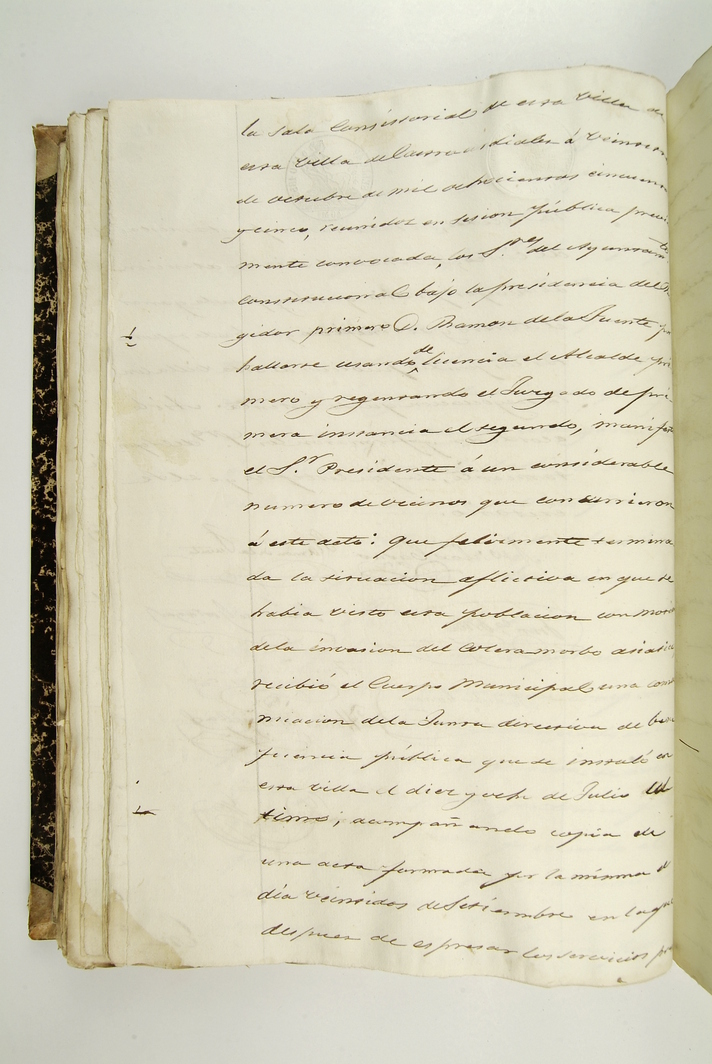 la Sala Consistorial de esta Villa de
esta Villa de Castro
de Octubre de mil ochocientos cincuenta
y cinco, reunidos en sesion pública previa
mente convocada, los S.res del Ayuntamto
constitucional bajo la presidencia del Re
gidor primero D. Ramon de la Fuente por
hallarse usando de licencia el Alcalde pri
mero y regentando el Juzgado de pri
mera instancia el segundo, manifestó
el S.r Presidente á un considerable
numero de vecinos que concurrieron
á este acto: que felizmente termina
da la situacion aflictiva en que se
habia visto esta poblacion con motivo
de la invasion del Colera-morbo asiatico,
recibió el Cuerpo Municipal una comu
nicacion de la Junta directiva de bene
ficencia pública que se instaló en
esta villa el diez y ocho de Julio ul
timo, acompañando copia de
una acta formada por la misma el
día veintidos de Setiembre en la que
despues de espresar los servicios